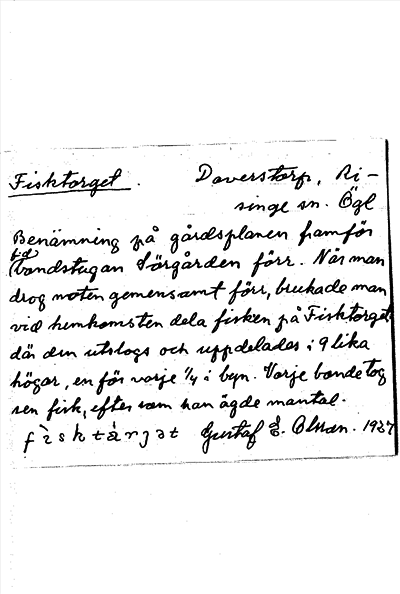 Fisktorget. Doverstorp, Ri-
singe sn. Ögl
Benämning på gårdsplanen framför
bondstugan Sörgården förr. När man
drog noten gemensamt förr, brukade man
vid hemkomsten dela fisken på Fisktorget
där den utslogs och uppdelades i 9 lika
högar, en för varje 1/4 i byn. Varje bonde tog
sen fisk, efter som han ägde mantal.
Gustaf E. Olsson. 1937